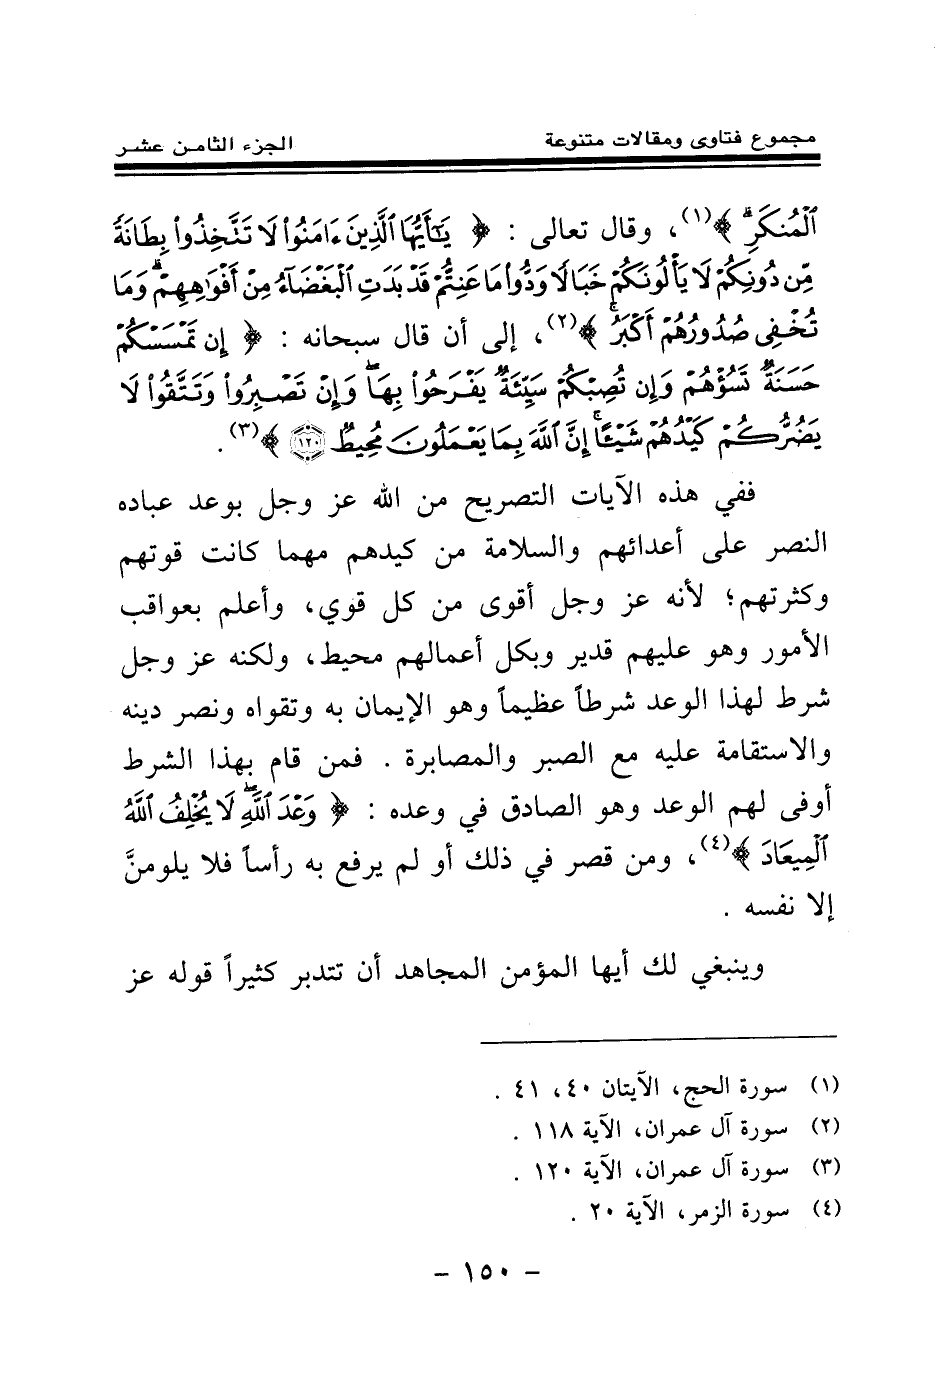 مجموع فتاوى ومقالات متنوعة الجزء الثامن عشر
ٱلْمُنكَرِ ﴾(١)، وقال تعالى : ﴿ يَٰٓأَيُّهَا ٱلَّذِينَ ءَامَنُوا۟ لَا تَتَّخِذُوا۟ بِطَانَةً
مِّن دُونِكُمْ لَا يَأْلُونَكُمْ خَبَالًا وَدُّوا۟ مَا عَنِتُّمْ قَدْ بَدَتِ ٱلْبَغْضَآءُ مِنْ أَفْوَٰهِهِمْ وَمَا
تُخْفِى صُدُورُهُمْ أَكْبَرُ ﴾(٢)، إلى أن قال سبحانه : ﴿ إِن تَمْسَسْكُمْ
حَسَنَةٌ تَسُؤْهُمْ وَإِن تُصِبْكُمْ سَيِّئَةٌ يَفْرَحُوا۟ بِهَا ۖ وَإِن تَصْبِرُوا۟ وَتَتَّقُوا۟ لَا
يَضُرُّكُمْ كَيْدُهُمْ شَيْـًٔا ۗ إِنَّ ٱللَّهَ بِمَا يَعْمَلُونَ مُحِيطٌ ١٢٠ ﴾(٣) .
ففي هذه الآيات التصريح من الله عز وجل بوعد عباده
النصر على أعدائهم والسلامة من كيدهم مهما كانت قوتهم
وكثرتهم؛ لأنه عز وجل أقوى من كل قوي، وأعلم بعواقب
الأمور وهو عليهم قدير وبكل أعمالهم محيط، ولكنه عز وجل
شرط لهذا الوعد شرطاً عظيماً وهو الإيمان به وتقواه ونصر دينه
والاستقامة عليه مع الصبر والمصابرة . فمن قام بهذا الشرط
أوفى لهم الوعد وهو الصادق في وعده : ﴿ وَعْدَ ٱللَّهِ ۖ لَا يُخْلِفُ ٱللَّهُ
ٱلْمِيعَادَ ﴾(٤)، ومن قصر في ذلك أو لم يرفع به رأساً فلا يلومنَّ
إلا نفسه .
وينبغي لك أيها المؤمن المجاهد أن تتدبر كثيراً قوله عز
(١) سورة الحج، الآيتان ٤٠، ٤١ .
(٢) سورة آل عمران، الآية ١١٨ .
(٣) سورة آل عمران، الآية ١٢٠ .
(٤) سورة الزمر، الآية ٢٠ .
- ١٥٠ -